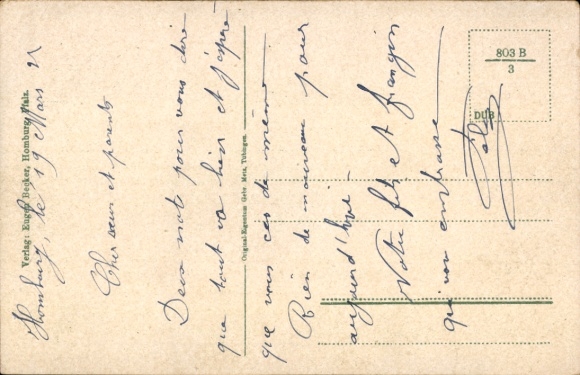 Homburg, le 19 Mars 21
Cher sœurs et parents
Deux mots pour vous dire
que tout va bien et j'espère
que vous ces de même
Rien de nouveau pour
aujourd'hui
Votre fils et frangin
qui vous embrasse
Verlag: Eugen Becker, Homburg, Pfalz.
Original-Eigentum Gebr. Metz, Tübingen.
803 B
3
DUB